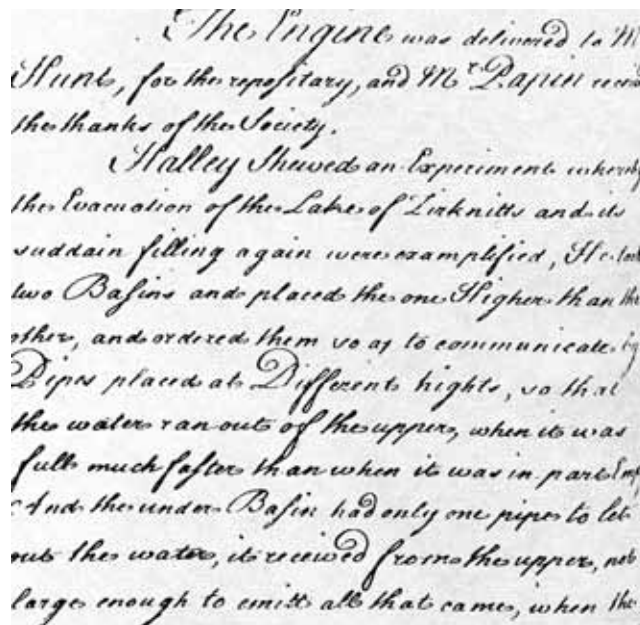 The Engine was delivered to M
Hunt, for the repositary, and Mr Papin
the thanks of the Society.
Halley Shewed an Experiment whereby
the Evacuation of the Lake of Zirknitts and its
suddain filling again were examplified, He took
two Basins and placed the one Higher than the
other, and ordered them so as to communicate by
Pipes placed at Different hights, so that
the water ran out of the upper, when it was
full much faster than when it was in part Emp
And the under Basin had only one pipe to let
out the water, it received from the upper, not
large enough to emitt all that came, when the